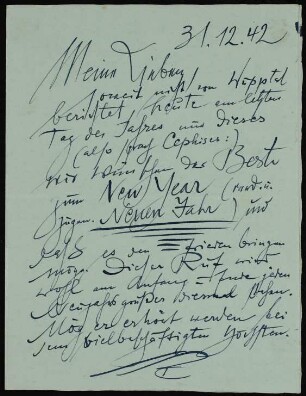 31.12.42
Meine Lieben
soweit nicht von Wuppertal
berichtet heute am letzten
Tag des Jahres und dieses
(also sprach Cephises:)
wir wünschen das Beste
zum New Year (
Neuen Jahr) und
daß es den Frieden bringen
möge. Dieser Ruf wird
wohl am Anfang + Ende jeden
Neujahrsgrußes diesmal stehen.
Mög er erhört werden bei
dem vielbeschäftigten Höchsten.